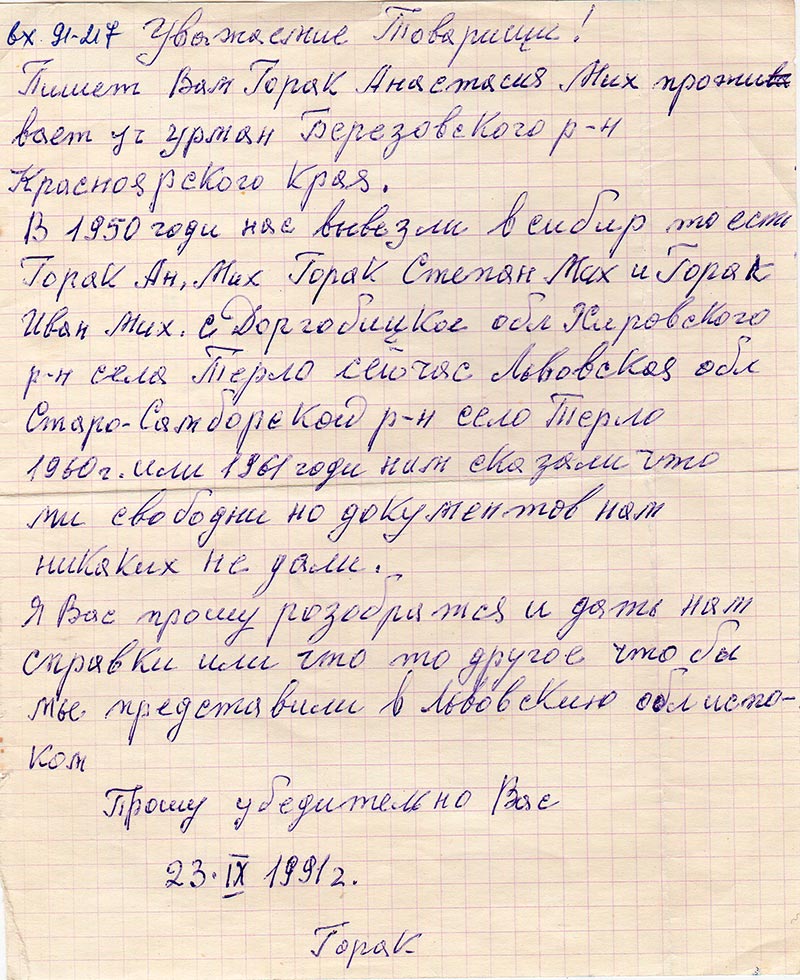 вх. 91-217 Уважаемие Товарищи!
Пишет Вам Горак Анастасия Мих прожива
вает уч Урман Березовского р-н
Красноярского Края.
В 1950 годи нас вывезли в сибир то есть
Горак Ан, Мих Горак Степан Мих и Горак
Иван Мих. с Доргобицкое обл Кировского
р-н села Терло сейчас Львовская обл
Старо-Самборской р-н село Терло
1960г. или 1961 годи нам сказали что
ми свободни но документов нам
никаких не дали.
Я Вас прошу розобратся и дать нам
справки или что то другое что бы
мы представили в Львовскию облиспо-
ком
Прошу убедительно Вас
23. IX 1991г.
Горак